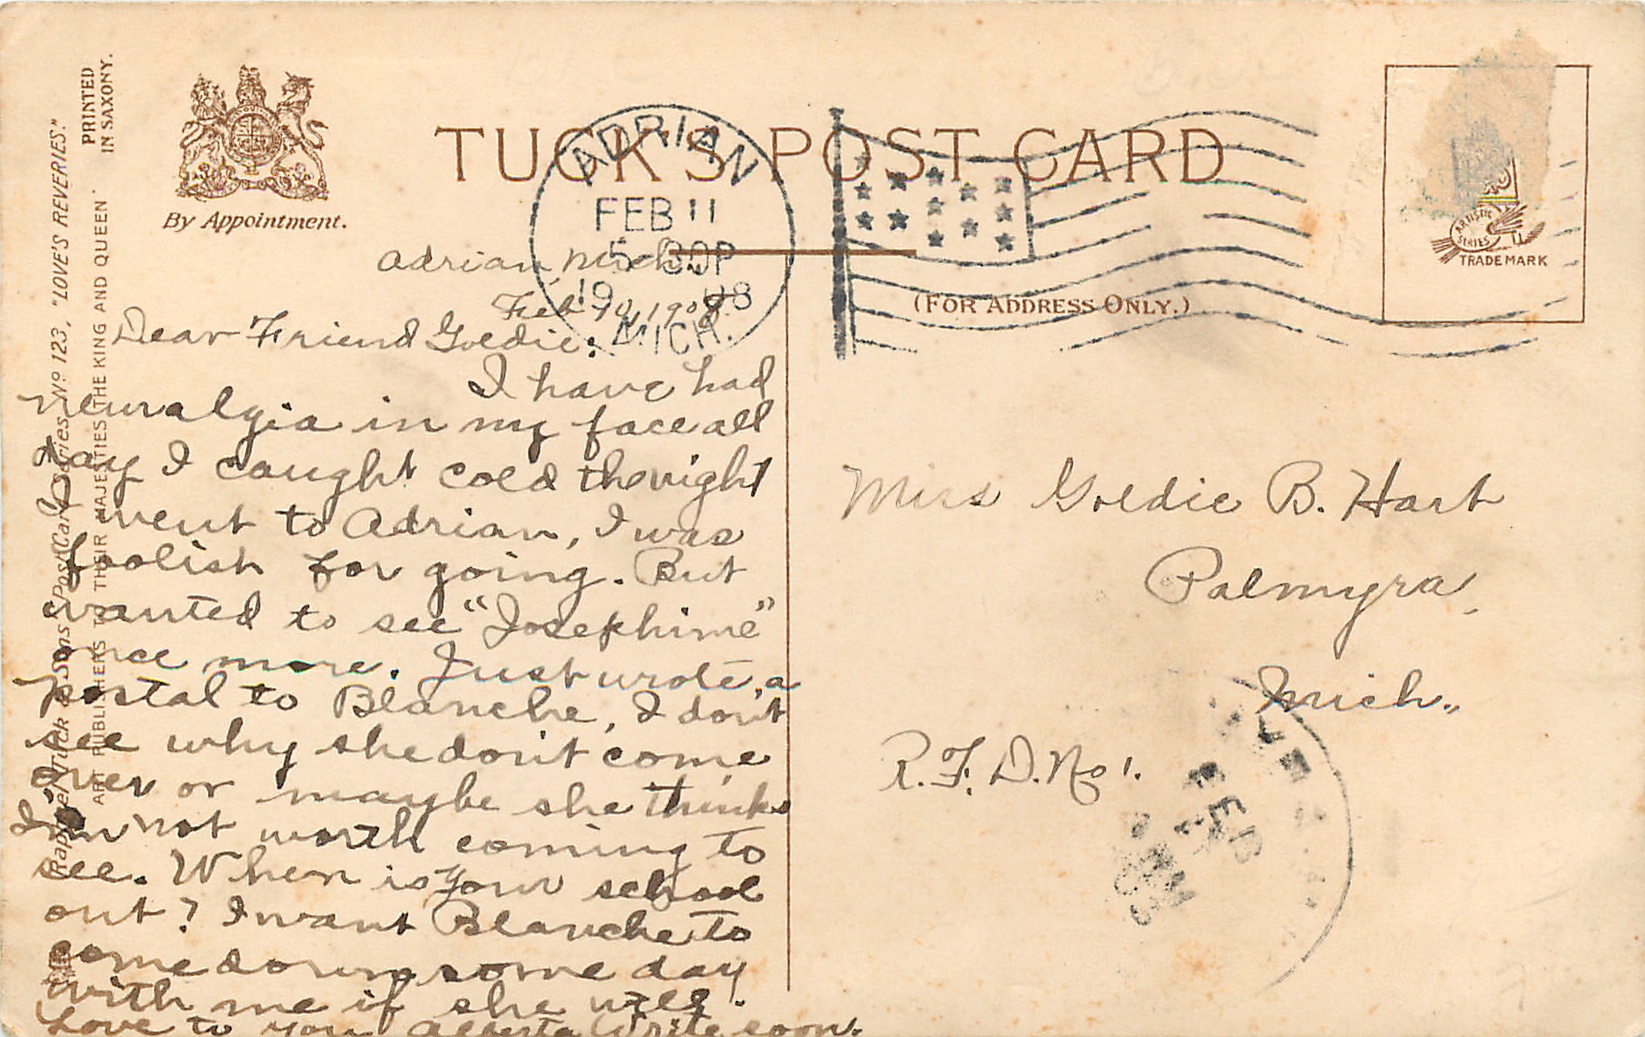 TUCK'S POST CARD
By Appointment.
(FOR ADDRESS ONLY.)
ARTISTIC
SERIES
TRADE MARK
PRINTED
IN SAXONY.
Raphael Tuck & Sons' "Post Card" Series Nº 123, "LOVE'S REVERIES."
ART PUBLISHERS TO THEIR MAJESTIES THE KING AND QUEEN
ADRIAN
FEB 11
5-30P
19 08
MICH.
Adrian Mich.
Feb. 10, 1908.
Dear Friend Goldie:
I have had
neuralgia in my face all
day I caught cold the night
I went to Adrian, I was
foolish for going. But
wanted to see "Josephine"
once more. Just wrote, a
postal to Blanche, I don't
see why she don't come
over or maybe she thinks
I'm not worth coming to
see. When is your school
out? I want Blanche to
come down some day
with me if she will.
Love to you Alberta Write soon.
Miss Goldie B. Hart
Palmyra,
Mich.,
R.F.D. No 1.
FEB